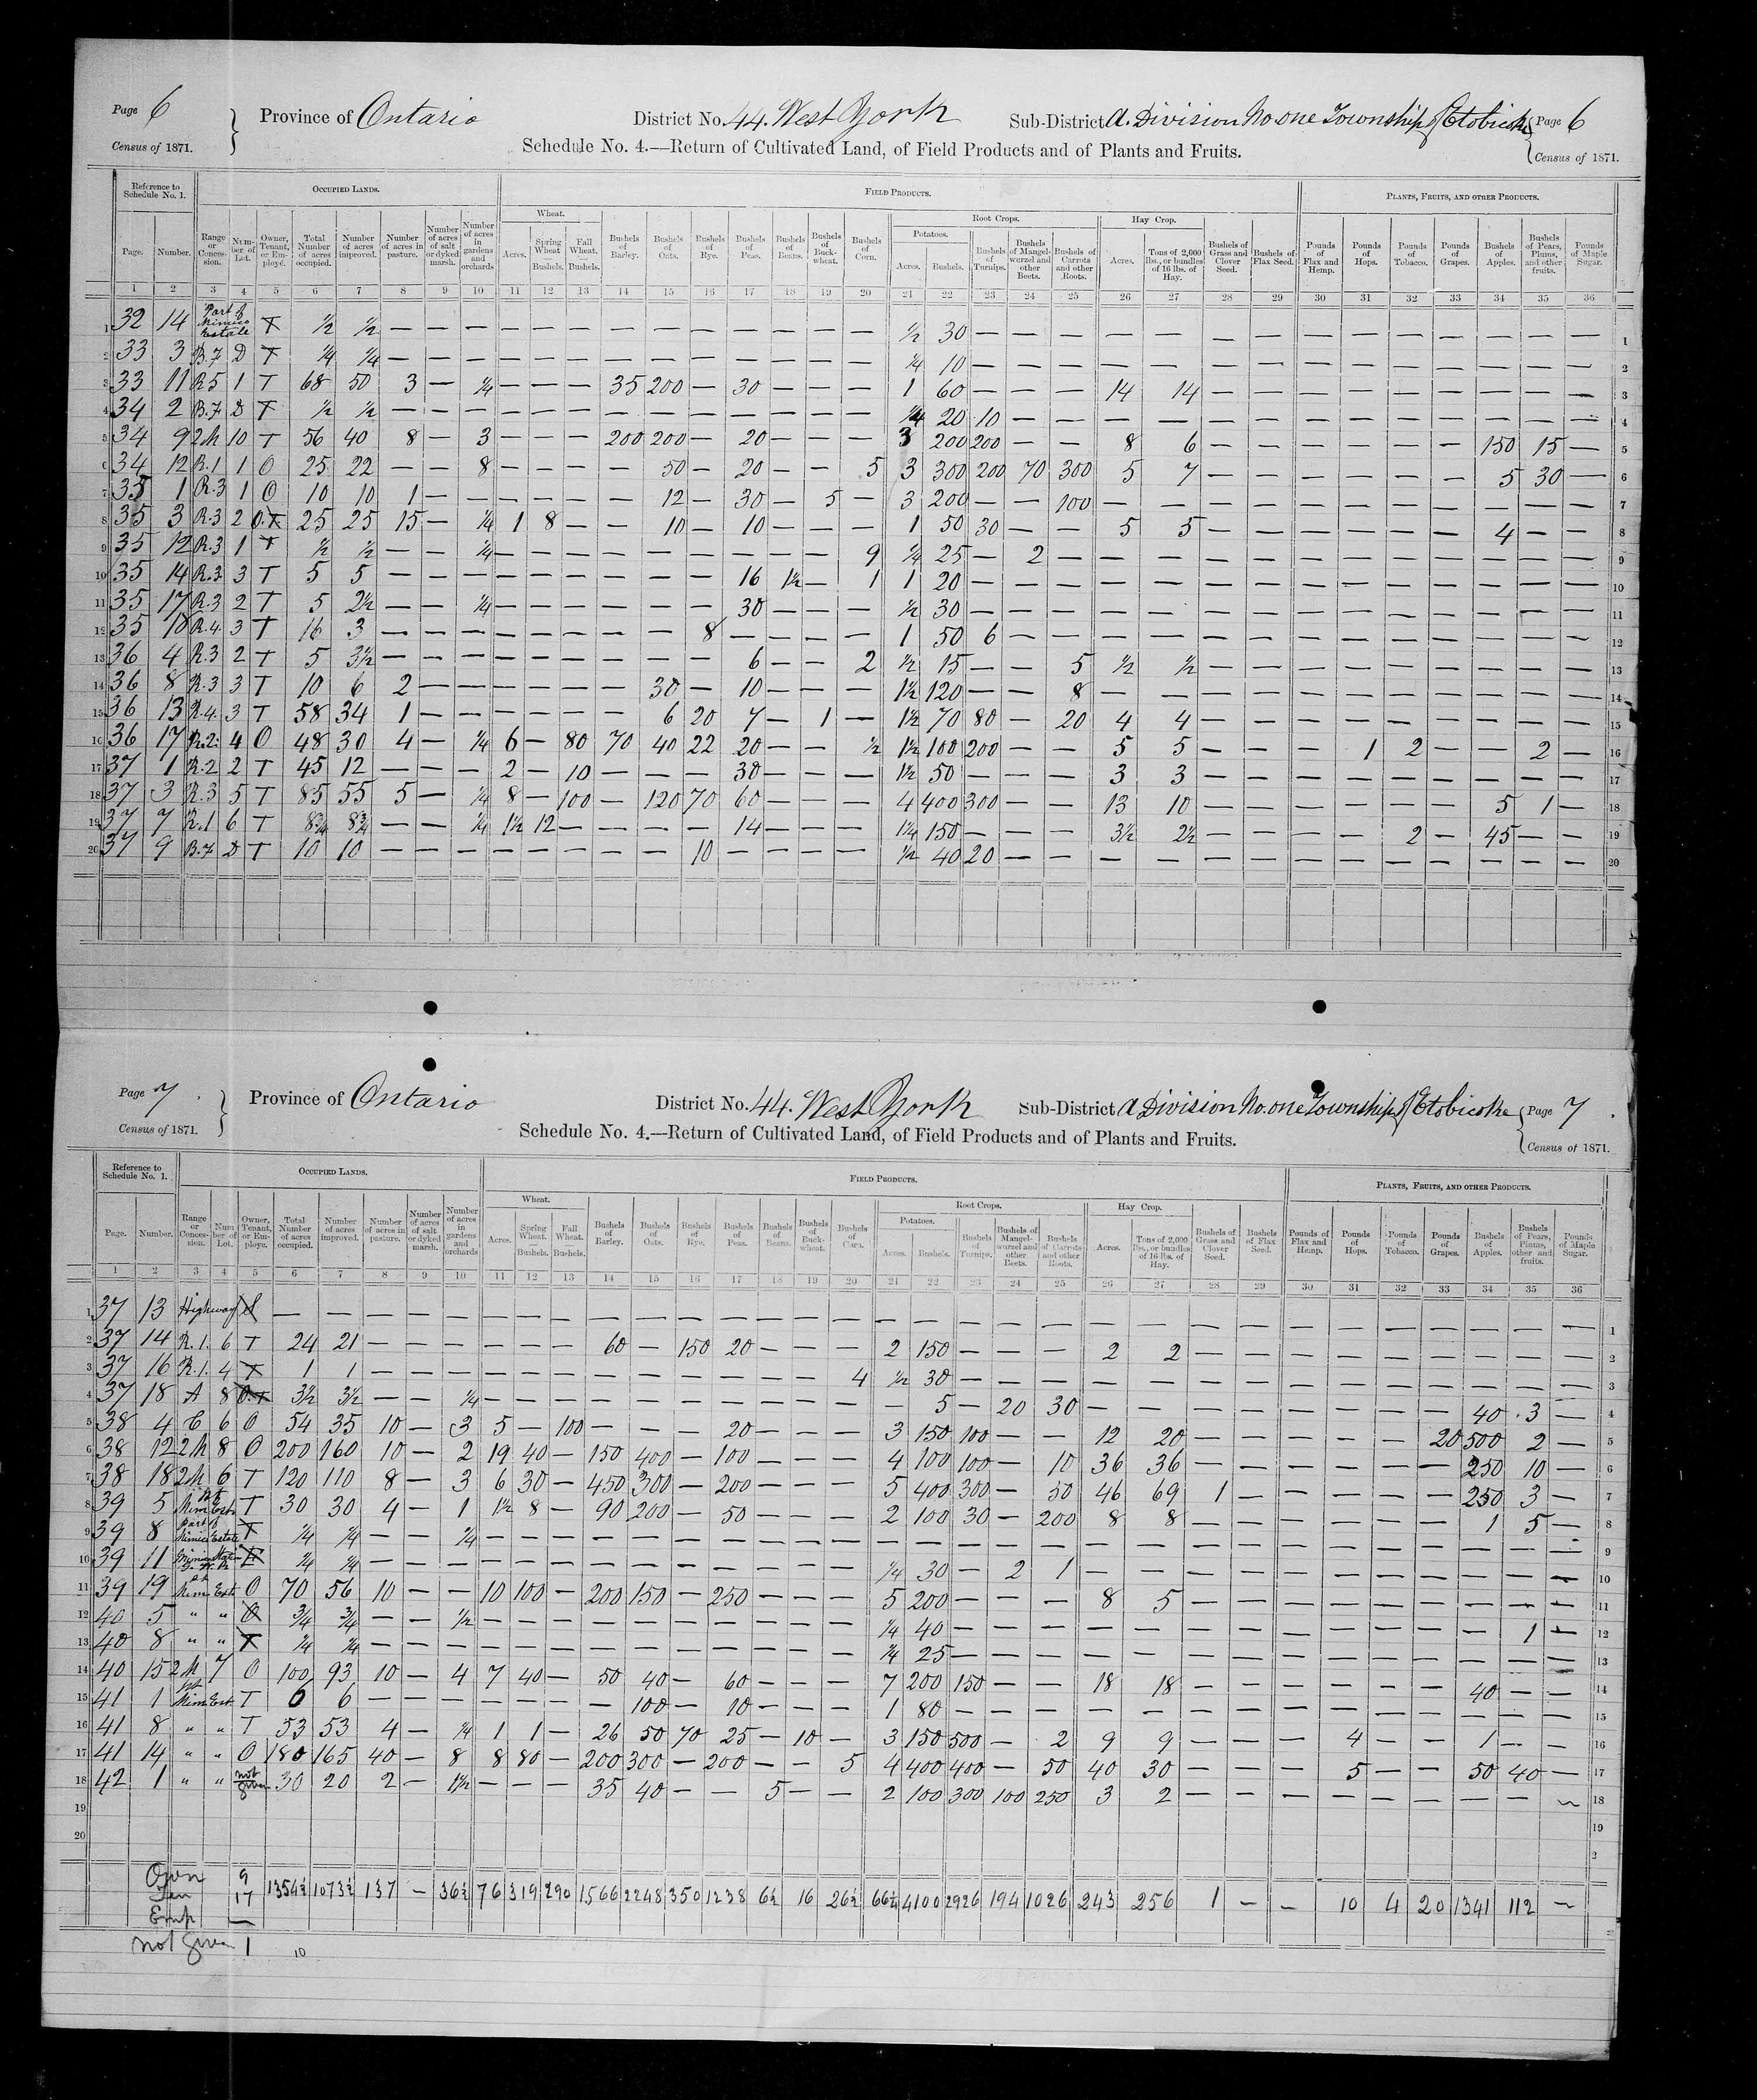 Page 6 Province of Ontario District No. 44. West York Sub-District A. Division No. one Township of Etobicoke Page 6
Census of 1871. Schedule No. 4.—Return of Cultivated Land, of Field Products and of Plants and Fruits. Census of 1871.
Reference to Schedule No. 1. OCCUPIED LANDS. FIELD PRODUCTS. PLANTS, FRUITS, AND OTHER PRODUCTS.
Wheat. Root Crops. Hay Crop.
Potatoes.
Page. Number. Range or Concession. Number of Lot. Owner, Tenant, or Employé. Total Number of acres occupied. Number of acres improved. Number of acres in pasture. Number of acres of salt or dyked marsh. Number of acres in gardens and orchards Acres. Spring Wheat — Bushels. Fall Wheat. — Bushels. Bushels of Barley. Bushels of Oats. Bushels of Rye. Bushels of Peas. Bushels of Beans. Bushels of Buckwheat. Bushels of Corn. Acres. Bushels. Bushels of Turnips. Bushels of Mangel-wurzel and other Beets. Bushels of Carrots and other Roots. Acres. Tons of 2,000 lbs., or bundles of 16 lbs. of Hay. Bushels of Grass and Clover Seed. Bushels of Flax Seed. Pounds of Flax and Hemp. Pounds of Hops. Pounds of Tobacco. Pounds of Grapes. Bushels of Apples. Bushels of Pears, Plums, and other fruits. Pounds of Maple Sugar.
1 2 3 4 5 6 7 8 9 10 11 12 13 14 15 16 17 18 19 20 21 22 23 24 25 26 27 28 29 30 31 32 33 34 35 36
1 32 14 Part of Mimico Estate T ½ ½ — — — — — — — — — — — — — ½ 30 — — — — — — — — — — — — — — 1
2 33 3 B.F D T ¼ ¼ — — — — — — — — — — — — — ¼ 10 — — — — — — — — — — — — — — 2
3 33 11 R 5 1 T 68 50 3 — ¼ — — — 35 200 — 30 — — — 1 60 — — — 14 14 — — — — — — — — — 3
4 34 2 B.F D T ½ ½ — — — — — — — — — — — — — ¼ 20 10 — — — — — — — — — — — — — 4
5 34 9 2 M 10 T 56 40 8 — 3 — — — 200 200 — 20 — — — 3 200 200 — — 8 6 — — — — — — 150 15 — 5
6 34 12 R.1 1 O 25 22 — — 8 — — — — 50 — 20 — — 5 3 300 200 70 300 5 7 — — — — — — 5 30 — 6
7 35 1 R.3 1 O 10 10 1 — — — — — — 12 — 30 — 5 — 3 200 — — 100 — — — — — — — — — — — 7
8 35 3 R.3 2 O.T 25 25 15 — ¼ 1 8 — — 10 — 10 — — — 1 50 30 — — 5 5 — — — — — — 4 — — 8
9 35 12 R.3 1 T ½ ½ — — ¼ — — — — — — — — — 9 ¼ 25 — 2 — — — — — — — — — — — — 9
10 35 14 R.3 3 T 5 5 — — — — — — — — — 16 1½ — 1 1 20 — — — — — — — — — — — — — — 10
11 35 17 R.3 2 T 5 2½ — — ¼ — — — — — — 30 — — — ½ 30 — — — — — — — — — — — — — — 11
12 35 18 R.4 3 T 16 3 — — — — — — — — 8 — — — — 1 50 6 — — — — — — — — — — — — — 12
13 36 4 R.3 2 T 5 3½ — — — — — — — — — 6 — — 2 ½ 15 — — 5 ½ ½ — — — — — — — — — 13
14 36 8 R.3 3 T 10 6 2 — — — — — — 30 — 10 — — — 1½ 120 — — 8 — — — — — — — — — — — 14
15 36 13 R.4 3 T 58 34 1 — — — — — — 6 20 7 — 1 — 1½ 70 80 — 20 4 4 — — — — — — — — — 15
16 36 17 R.2 4 O 48 30 4 — ¼ 6 — 80 70 40 22 20 — — ½ 1½ 100 200 — — 5 5 — — — 1 2 — — 2 — 16
17 37 1 R.2 2 T 45 12 — — — 2 — 10 — — — 30 — — — 1½ 50 — — — 3 3 — — — — — — — — — 17
18 37 3 R.3 5 T 85 55 5 — ¼ 8 — 100 — 120 70 60 — — — 4 400 300 — — 13 10 — — — — — — 5 1 — 18
19 37 7 R.1 6 T 8¾ 8¾ — — ¼ 1½ 12 — — — — 14 — — — 1¼ 150 — — — 3½ 2½ — — — — 2 — 45 — — 19
20 37 9 B.F D T 10 10 — — — — — — — — 10 — — — — ½ 40 20 — — — — — — — — — — — — — 20
Page 7. Province of Ontario District No. 44. West York Sub-District A Division No. one Township of Etobicoke Page 7.
Census of 1871. Schedule No. 4.—Return of Cultivated Land, of Field Products and of Plants and Fruits. Census of 1871.
Reference to Schedule No. 1. OCCUPIED LANDS. FIELD PRODUCTS. PLANTS, FRUITS, AND OTHER PRODUCTS.
Wheat. Root Crops. Hay Crop.
Potatoes.
Page. Number. Range or Concession. Number of Lot. Owner, Tenant, or Employe. Total Number of acres occupied. Number of acres improved. Number of acres in pasture. Number of acres of salt or dyked marsh. Number of acres in gardens and orchards Acres. Spring Wheat. — Bushels. Fall Wheat. — Bushels. Bushels of Barley. Bushels of Oats. Bushels of Rye. Bushels of Peas. Bushels of Beans. Bushels of Buckwheat. Bushels of Corn. Acres. Bushels. Bushels of Turnips. Bushels of Mangel-wurzel and other Beets. Bushels of Carrots and other Roots. Acres. Tons of 2,000 lbs., or bundles of 16 lbs. of Hay. Bushels of Grass and Clover Seed. Bushels of Flax Seed. Pounds of Flax and Hemp. Pounds of Hops. Pounds of Tobacco. Pounds of Grapes. Bushels of Apples. Bushels of Pears, Plums, other and fruits. Pounds of Maple Sugar.
1 2 3 4 5 6 7 8 9 10 11 12 13 14 15 16 17 18 19 20 21 22 23 24 25 26 27 28 29 30 31 32 33 34 35 36
1 37 13 Highway — — — — — — — — — — — — — — — — — — — — — — — — — — — — — — — 1
2 37 14 R.1. 6 T 24 21 — — — — — — 60 — 150 20 — — — 2 150 — — — 2 2 — — — — — — — — — 2
3 37 16 R.1. 4 T 1 1 — — — — — — — — — — — — 4 ½ 30 — — — — — — — — — — — — — — 3
4 37 18 A 8 O.T 3½ 3½ — — ¼ — — — — — — — — — — — 5 — 20 30 — — — — — — — — 40 3 — 4
5 38 4 C 6 O 54 35 10 — 3 5 — 100 — — — 20 — — — 3 150 100 — — 12 20 — — — — — 20 500 2 — 5
6 38 12 2 M 8 O 200 160 10 — 2 19 40 — 150 400 — 100 — — — 4 100 100 — 10 36 36 — — — — — — 250 10 — 6
7 38 18 2 M 6 T 120 110 8 — 3 6 30 — 450 300 — 200 — — — 5 400 300 — 50 46 69 1 — — — — — 250 3 — 7
8 39 5 Pt Mim Est. T 30 30 4 — 1 1½ 8 — 90 200 — 50 — — — 2 100 30 — 200 8 8 — — — — — — 1 5 — 8
9 39 8 Part of Mimico Estate T ¼ ¼ — — ¼ — — — — — — — — — — — — — — — — — — — — — — — — — — 9
10 39 11 Mimico Station G. W. R ¼ ¼ — — — — — — — — — — — — — ¼ 30 — 2 1 — — — — — — — — — — — 10
11 39 19 Pt Mim Est. O 70 56 10 — — 10 100 — 200 150 — 250 — — — 5 200 — — — 8 5 — — — — — — — — — 11
12 40 5 " " O ¾ ¾ — — ½ — — — — — — — — — — ¼ 40 — — — — — — — — — — — — 1 — 12
13 40 8 " " T ¼ ¼ — — — — — — — — — — — — — ¼ 25 — — — — — — — — — — — — — — 13
14 40 15 2 M 7 O 100 93 10 — 4 7 40 — 50 40 — 60 — — — 7 200 150 — — 18 18 — — — — — — 40 — — 14
15 41 1 Pt Mim Est. T 6 6 — — — — — — — 100 — 10 — — — 1 80 — — — — — — — — — — — — — — 15
16 41 8 " " T 53 53 4 — ¼ 1 1 — 26 50 70 25 — 10 — 3 150 500 — 2 9 9 — — — 4 — — 1 — — 16
17 41 14 " " O 180 165 40 — 8 8 80 — 200 300 — 200 — — 5 4 400 400 — 50 40 30 — — — 5 — — 50 40 — 17
18 42 1 " " not given 30 20 2 — 1½ — — — 35 40 — — 5 — — 2 100 300 100 250 3 2 — — — — — — — — — 18
19 19
20 2
Own 9
Ten 17 1354½ 1073½ 137 — 36½ 76 319 290 1566 2248 350 1238 6½ 16 26½ 66¼ 4100 2926 194 1026 243 256 1 — — 10 4 20 1341 112 —
Emp —
not given 1 10